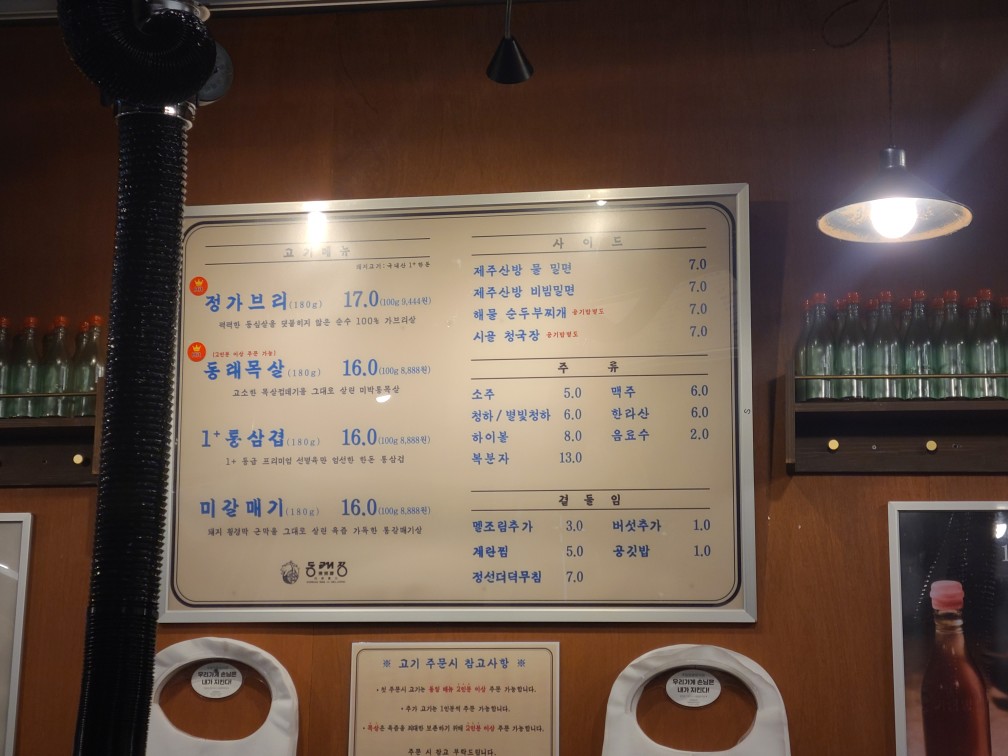 고기메뉴
돼지고기: 국내산 1+ 한돈
정가브리(180g) 17.0(100g 9,444원)
퍽퍽한 등심살을 덧붙히지 않은 순수 100% 가브리살
(2인분 이상 주문 가능)
동래목살(180g) 16.0(100g 8,888원)
고소한 목살껍데기를 그대로 살린 미박통목살
1+통삼겹(180g) 16.0(100g 8,888원)
1+ 등급 프리미엄 선별육만 엄선한 한돈 통삼겹
미갈매기(180g) 16.0(100g 8,888원)
돼지 횡경막 근막을 그대로 살린 육즙 가득한 통갈매기살
동래정
사이드
제주산방 물 밀면 7.0
제주산방 비빔밀면 7.0
해물 순두부찌개 공기밥별도 7.0
시골 청국장 공기밥별도 7.0
주 류
소주 5.0 맥주 6.0
청하/별빛청하 6.0 한라산 6.0
하이볼 8.0 음료수 2.0
복분자 13.0
곁들임
멜조림추가 3.0 버섯추가 1.0
계란찜 5.0 공깃밥 1.0
정선더덕무침 7.0
※ 고기 주문시 참고사항 ※
• 첫 주문시 고기는 동일 메뉴 2인분 이상 주문 가능합니다.
• 추가 고기는 1인분씩 주문 가능합니다.
• 목살은 육즙을 최대한 보존하기 위해 2인분 이상 주문 가능합니다.
주문 시 참고 부탁드립니다.
우리가게 손님은
내가 지킨다!
우리가게 손님은
내가 지킨다!